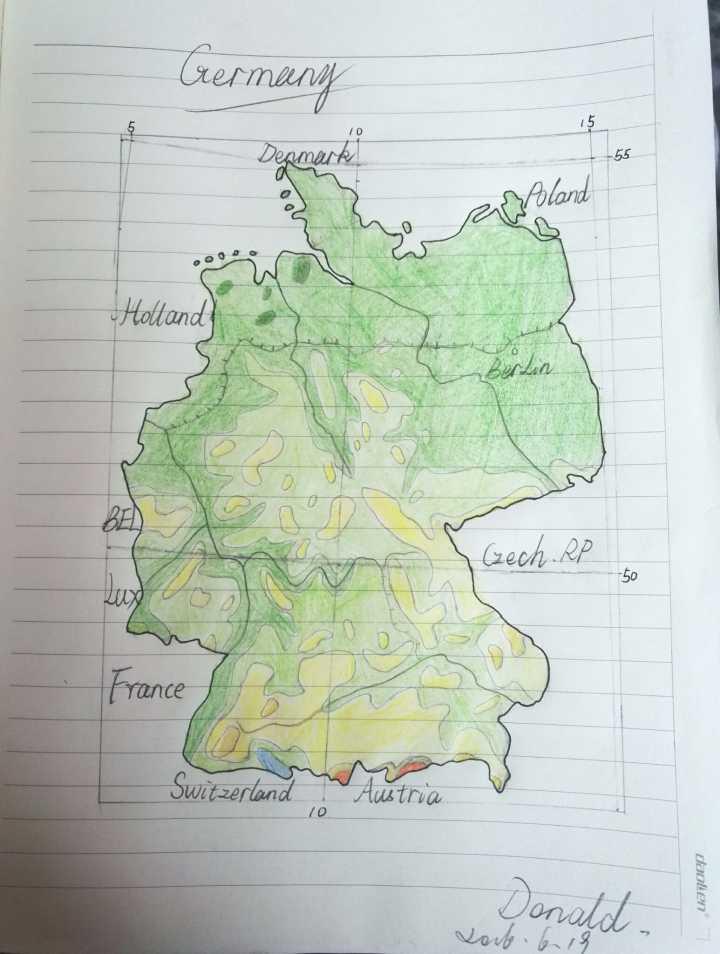 Germany
5
10
15
55
Denmark
Poland
Holland
Berlin
BEL
Czech. RP
50
Lux
France
Switzerland
Austria
10
Donald
2016. 6. 19